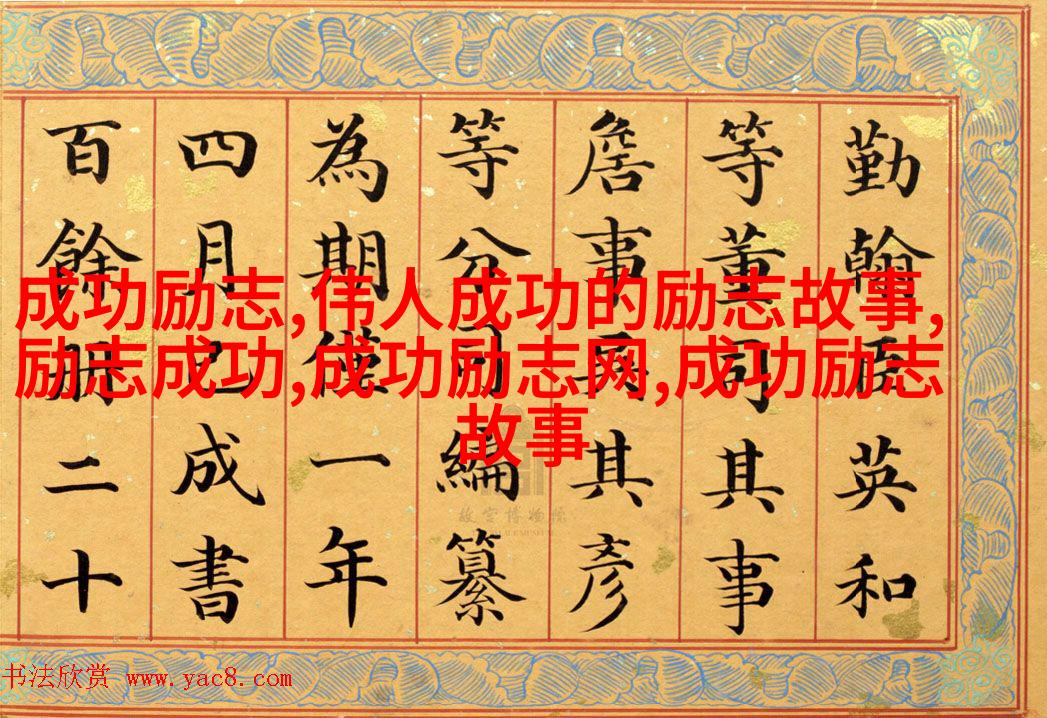 勤翰臣英和
等董司其事
詹事其彦
等分司編纂
為期僅一年
四月成書
百餘二十
成功励志,伟人成功的励志故事,
励志成功,成功励志网,成功励志
故事
故宫博物院
书法欣赏 www.yac8.com